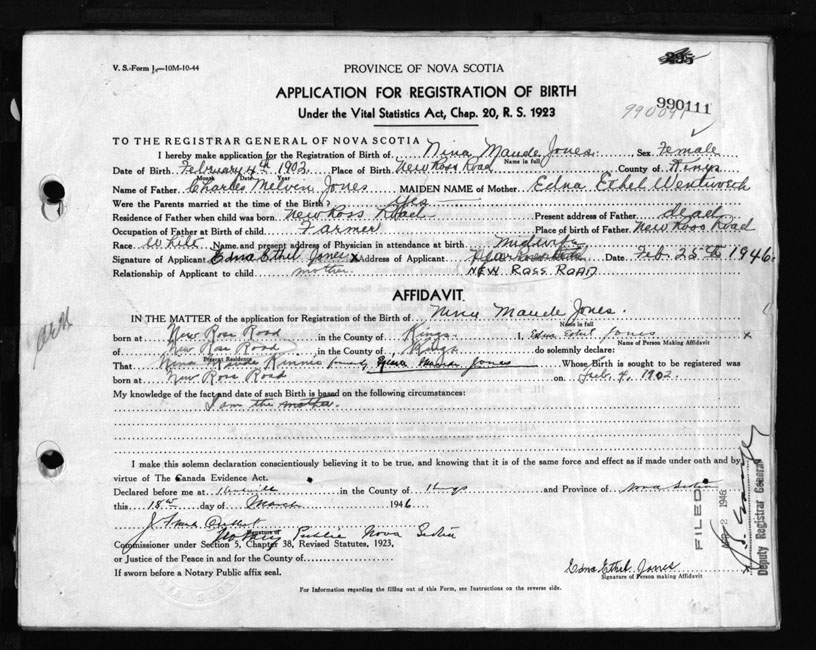 V. S.-Form 1,—10M-10-44
PROVINCE OF NOVA SCOTIA
295
APPLICATION FOR REGISTRATION OF BIRTH
Under the Vital Statistics Act, Chap. 20, R. S. 1923
990111
TO THE REGISTRAR GENERAL OF NOVA SCOTIA
I hereby make application for the Registration of Birth of Nina Maude Jones. Sex Female
Name in full
Date of Birth February 4th 1902 Place of Birth New Ross Road County of Kings
Month Date Year
Name of Father Charles Melvin Jones MAIDEN NAME of Mother Edna Ethel Wentworth
Were the Parents married at the time of Birth? yes
Residence of Father when child was born New Ross Road Present address of Father dead
Occupation of Father at Birth of child Farmer Place of birth of Father New Ross Road
Race White Name and present address of Physician in attendance at birth midwife
Signature of Applicant Edna Ethel Jones x Address of Applicant Date Feb. 25th 1946.
Relationship of Applicant to child mother NEW ROSS ROAD
AFFIDAVIT.
IN THE MATTER of the application for Registration of the Birth of Nina Maude Jones.
Name in full
born at New Ross Road in the County of Kings I, Edna Ethel Jones x
Name of Person Making Affidavit
of New Ross Road in the County of Kings do solemnly declare:
Present Residence
That Nina Maude Kinnie formerly Nina Maude Jones Whose Birth is sought to be registered was
born at New Ross Road on Feb. 4, 1902.
My knowledge of the fact and date of such Birth is based on the following circumstances:
I am the mother.
I make this solemn declaration conscientiously believing it to be true, and knowing that it is of the same force and effect as if made under oath and by
virtue of The Canada Evidence Act.
Declared before me at in the County of Kings and Province of Nova Scotia
this 18th day of March 1946
Signature of
Notary Public Nova Scotia
Commissioner under Section 5, Chapter 38, Revised Statutes, 1923,
or Justice of the Peace in and for the County of
If sworn before a Notary Public affix seal.
Edna Ethel Jones
Signature of Person making Affidavit
For Information regarding the filling out of this Form, see Instructions on the reverse side.
FILED
2 1946
Deputy Registrar General